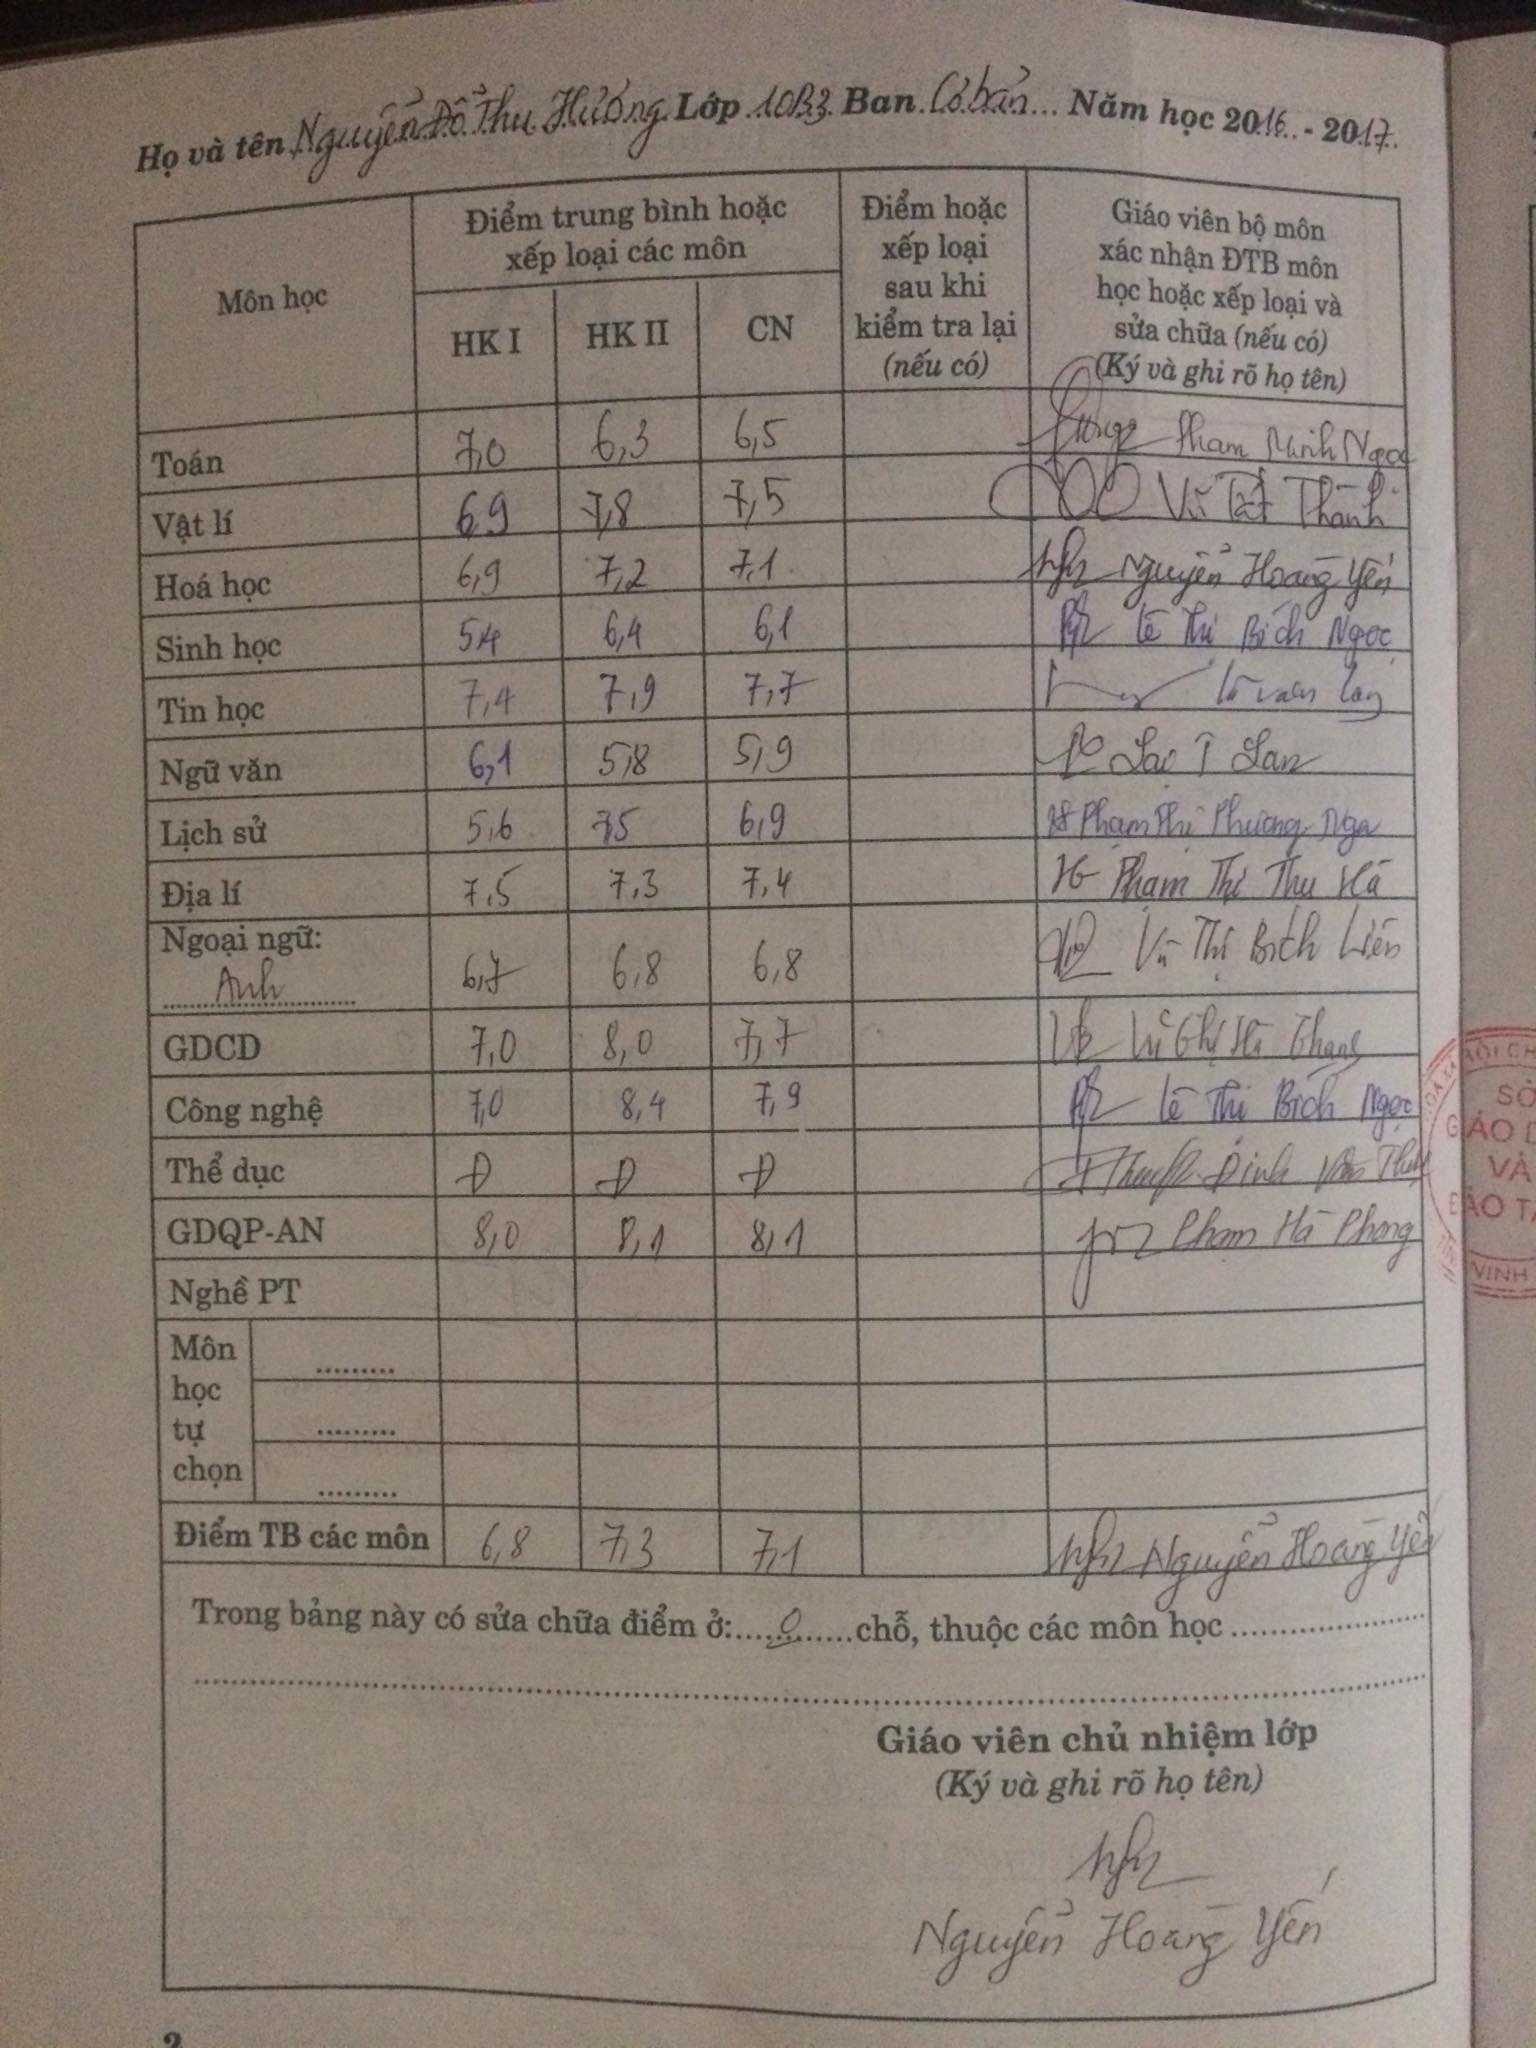 Họ và tên Nguyễn Đỗ Thu Hương Lớp 10B3 Ban Cơ bản Năm học 2016 - 2017
Môn học
Điểm trung bình hoặc
xếp loại các môn
HK I HK II CN
Điểm hoặc
xếp loại
sau khi
kiểm tra lại
(nếu có)
Giáo viên bộ môn
xác nhận ĐTB môn
học hoặc xếp loại và
sửa chữa (nếu có)
(Ký và ghi rõ họ tên)
Toán 7,0 6,3 6,5 Phạm Minh Ngọc
Vật lí 6,9 7,8 7,5 Vũ Tất Thành
Hoá học 6,9 7,2 7,1 Nguyễn Hoàng Yến
Sinh học 5,4 6,4 6,1 Lê Thị Bích Ngọc
Tin học 7,4 7,9 7,7
Ngữ văn 6,1 5,8 5,9 Lan
Lịch sử 5,6 7,5 6,9 Phạm Thị Phương Nga
Địa lí 7,5 7,3 7,4 Phạm Thị Thu Hà
Ngoại ngữ:
Anh 6,7 6,8 6,8 Vũ Thị Bích Liên
GDCD 7,0 8,0 7,7
Công nghệ 7,0 8,4 7,9 Lê Thị Bích Ngọc
Thể dục Đ Đ Đ Đinh Văn
GDQP-AN 8,0 8,1 8,1 Phạm Hà Phong
Nghề PT
Môn
học
tự
chọn
Điểm TB các môn 6,8 7,3 7,1 Nguyễn Hoàng Yến
Trong bảng này có sửa chữa điểm ở: 0 chỗ, thuộc các môn học
Giáo viên chủ nhiệm lớp
(Ký và ghi rõ họ tên)
Nguyễn Hoàng Yến
2
SỞ
GIÁO D
VÀ
ĐÀO TẠ
VINH